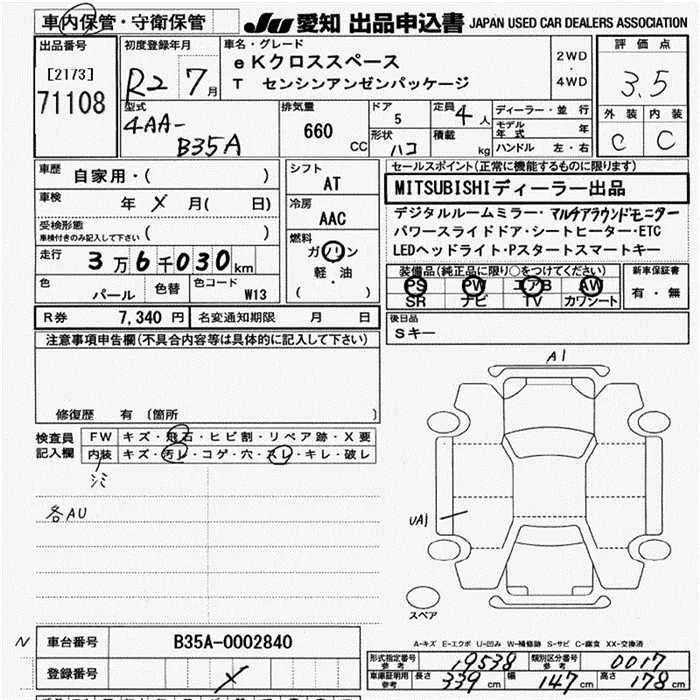 車内保管・守衛保管
JU 愛知 出品申込書 JAPAN USED CAR DEALERS ASSOCIATION
出品番号
[2173]
71108
初度登録年月
R2 7 月
車名・グレード
eKクロススペース
T センシンアンゼンパッケージ
2WD
・
4WD
評価点
3.5
外装 内装
C C
型式
4AA-
B35A
排気量
660 CC
ドア
5
形状
ハコ
定員
4 人
積載
kg
ディーラー・並行
モデル年式 年
ハンドル 左・右
車歴
自家用・( )
車検
年 メ 月( 日)
受検形態
車検付きのみ記入して下さい ( )
走行
3万6千030km
色
パール
色替
色コード
W13
シフト
AT
冷房
AAC
燃料
ガソリン
軽・油
( )
セールスポイント(正常に機能するものに限ります)
MITSUBISHIディーラー出品
デジタルルームミラー・マルチアラウンドモニター
パワースライドドア・シートヒーター・ETC
LEDヘッドライト・Pスタートスマートキー
装備品(純正品に限り○をつけてください)
PS PW エアB AW
SR ナビ TV カワシート
新車保証書
有・無
R券 7,340 円
名変通知期限 月 日
後日品
Sキー
注意事項申告欄(不具合内容等は具体的に記入して下さい)
修復歴 有 〔箇所 〕
検査員
記入欄
FW キズ・飛石・ヒビ割・リペア跡・X要
内装 キズ・汚レ・コゲ・穴・スレ・キレ・破レ
シミ
各AU
A1
UA1
スペア
A-キズ E-エクボ U-凹み W-補修跡 S-サビ C-腐食 XX-交換済
N
車台番号 B35A-0002840
登録番号
形式指定番号 参考 19538
類別区分番号 参考 0017
車庫証明用 参考 長さ 339 cm 幅 147 cm 高さ 178 cm